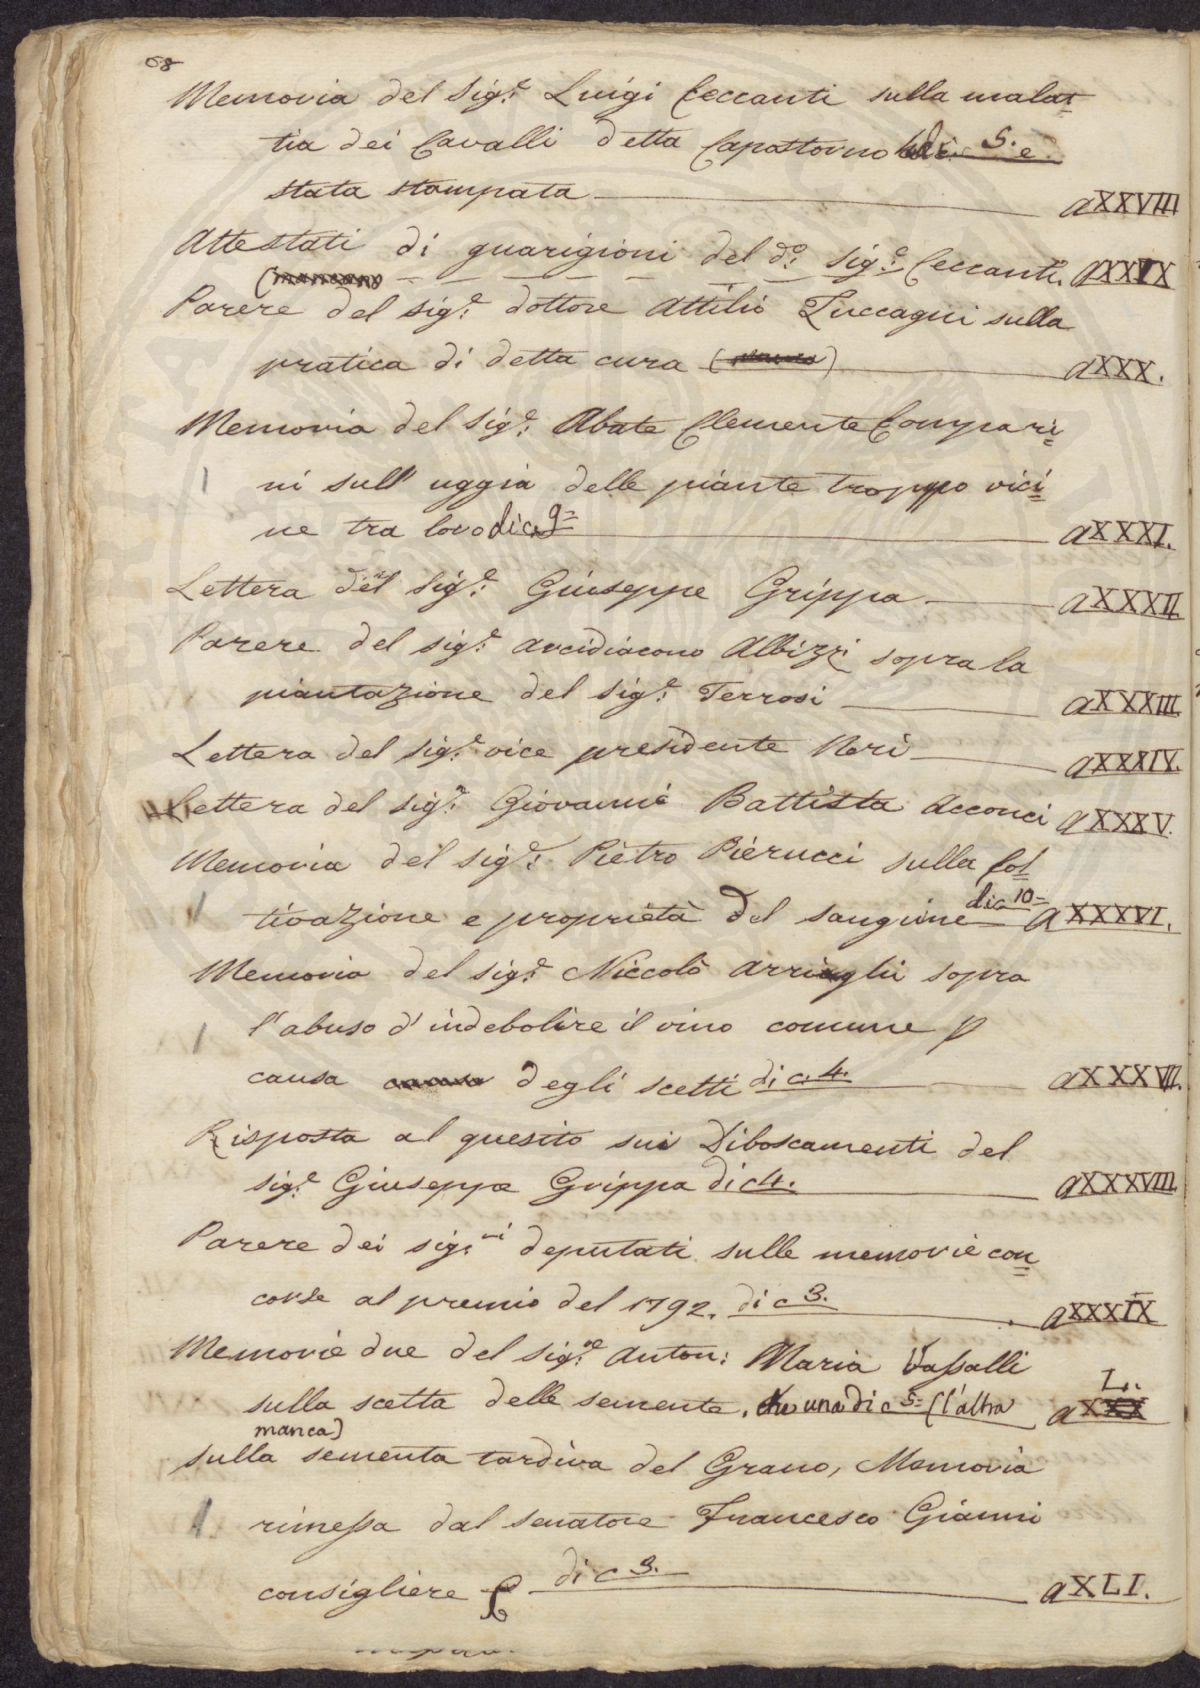 68
Memoria del Sig.e Luigi Ceccanti sulla malat-
tia dei Cavalli detta Capostorno di c. 5. e
stata stampata a XXVIII
Attestati di guarigioni del d.o sig.e Ceccanti. a XXIX
(mancano
Parere del sig.e dottore Attilio Zuccagni sulla
pratica di detta cura (manca) a XXX.
Memoria del Sig.e Abate Clemente Compari=
ni sull' uggia delle piante troppo vici=
ne tra loro di c. 9= a XXXI.
Lettera del Sig.e Giuseppe Grippa a XXXII
Parere del sig.e arcidiacono Albizzi sopra la
piantazione del sig.e Terrosi a XXXIII
Lettera del sig.e vice presidente Neri a XXXIV.
Lettera del sig.e Giovanni Battista Acconci a XXXV.
Memoria del sig.e Pietro Pierucci sulla Col=
tivazione e proprietà del sanguine di c 10= a XXXVI.
Memoria del sig.e Niccolò Arrighi sopra
l'abuso d'indebolire il vino comune p
causa causa degli scelti di c. 4. a XXXVII.
Risposta al quesito sui Diboscamenti del
sig.e Giuseppe Grippa di c 4. a XXXVIII.
Parere dei sig.ri deputati sulle memorie con=
corse al premio del 1792. di c 3. a XXXIX
Memorie due del sig.re Anton: Maria Vassalli
sulla scelta delle semente, una di c 5= (l'altra a XL.
manca)
sulla sementa tardiva del Grano, Memoria
rimessa dal senatore Francesco Gianni
consigliere di c 3. a XLI.